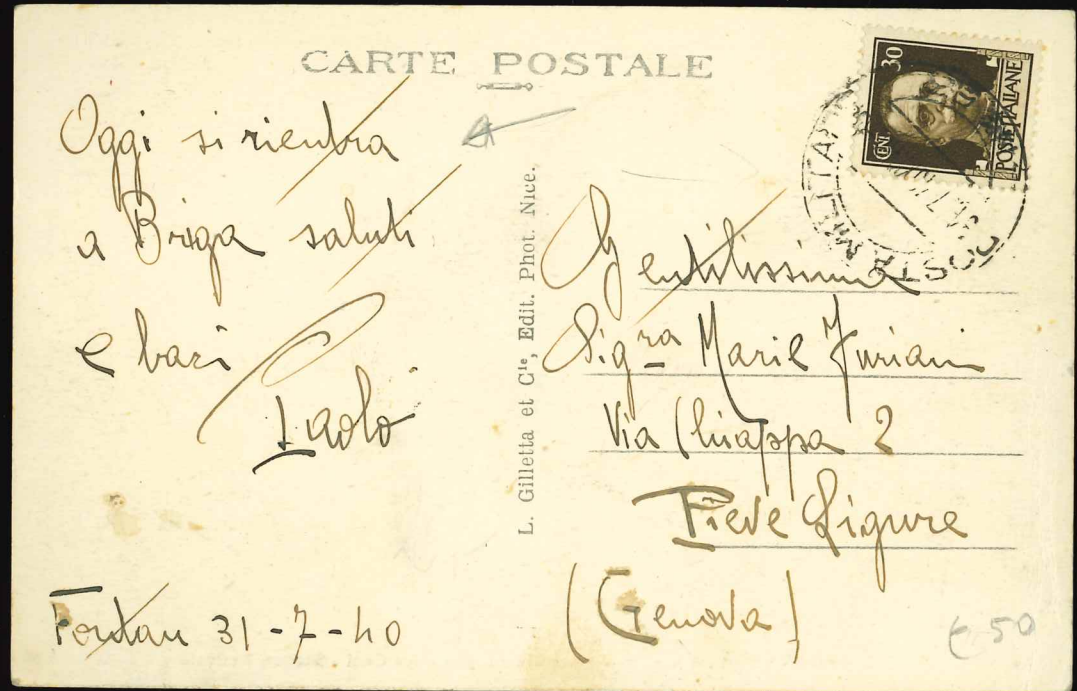 CARTE POSTALE
Oggi si rientra
a Briga saluti
e baci
Paolo
Fontan 31-7-40
L. Gilletta et Cie, Edit. Phot. Nice.
30
CENT
POSTE ITALIANE
POSTA MILITARE
Gentilissima
Sig.ra Marie Furiani
Via Chiappa 2
Pieve Ligure
(Genova)
€ 50